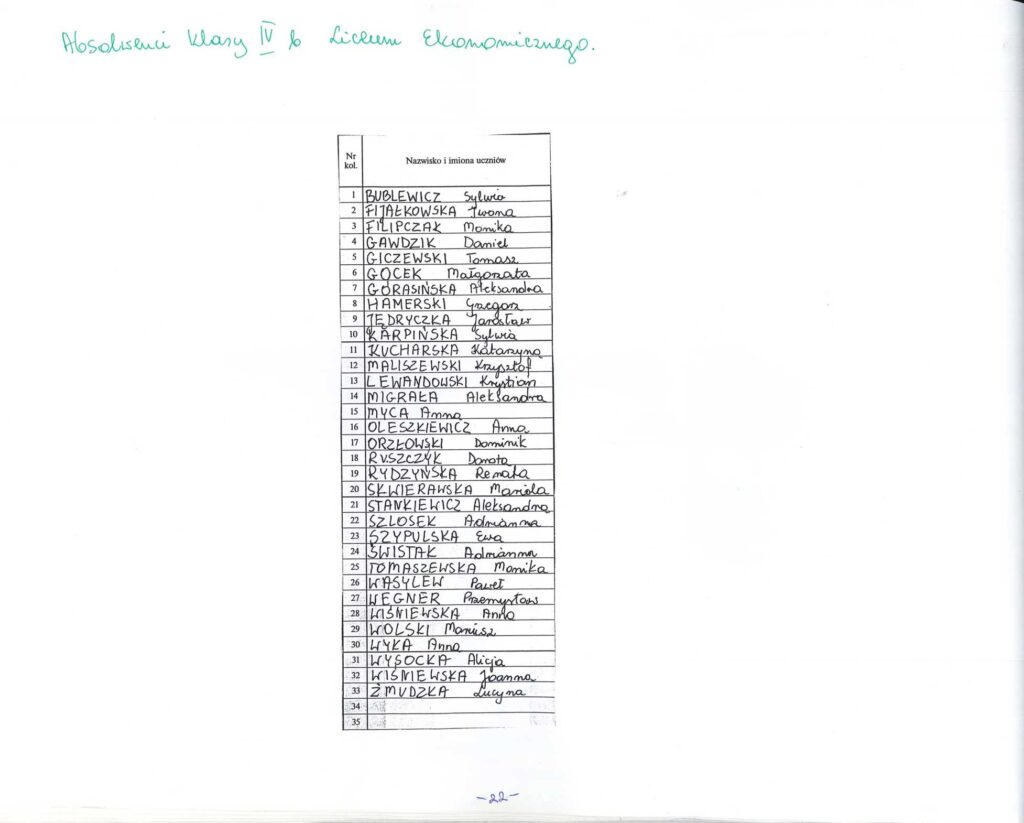 Absolwenci klasy IV b Liceum Ekonomicznego.
Nr kol. Nazwisko i imiona uczniów
1 BUBLEWICZ Sylwia
2 FIJAŁKOWSKA Iwona
3 FILIPCZAK Monika
4 GAWDZIK Daniel
5 GICZEWSKI Tomasz
6 GOCEK Małgorzata
7 GÓRASIŃSKA Aleksandra
8 HAMERSKI Grzegorz
9 JĘDRYCZKA Jarosław
10 KARPIŃSKA Sylwia
11 KUCHARSKA Katarzyna
12 MALISZEWSKI Krzysztof
13 LEWANDOWSKI Krystian
14 MIGRAŁA Aleksandra
15 MYCA Anna
16 OLESZKIEWICZ Anna
17 ORZŁOWSKI Dominik
18 RUSZCZYK Dorota
19 RYDZYŃSKA Renata
20 SKWIERAWSKA Mariola
21 STANKIEWICZ Aleksandra
22 SZLOSEK Adrianna
23 SZYPULSKA Ewa
24 ŚWISTAK Adrianna
25 TOMASZEWSKA Monika
26 WASYLEW Paweł
27 WEGNER Przemysław
28 WIŚNIEWSKA Anna
29 WOLSKI Mariusz
30 WYKA Anna
31 WYSOCKA Alicja
32 WIŚNIEWSKA Joanna
33 ŻMUDZKA Lucyna
34
35
-22-